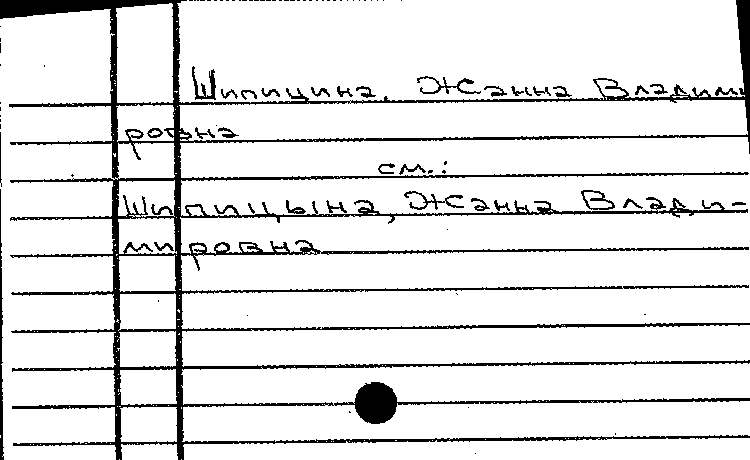 Шипицина, Жанна Владими
ровна
см.:
Шипицына, Жанна Влади-
мировна